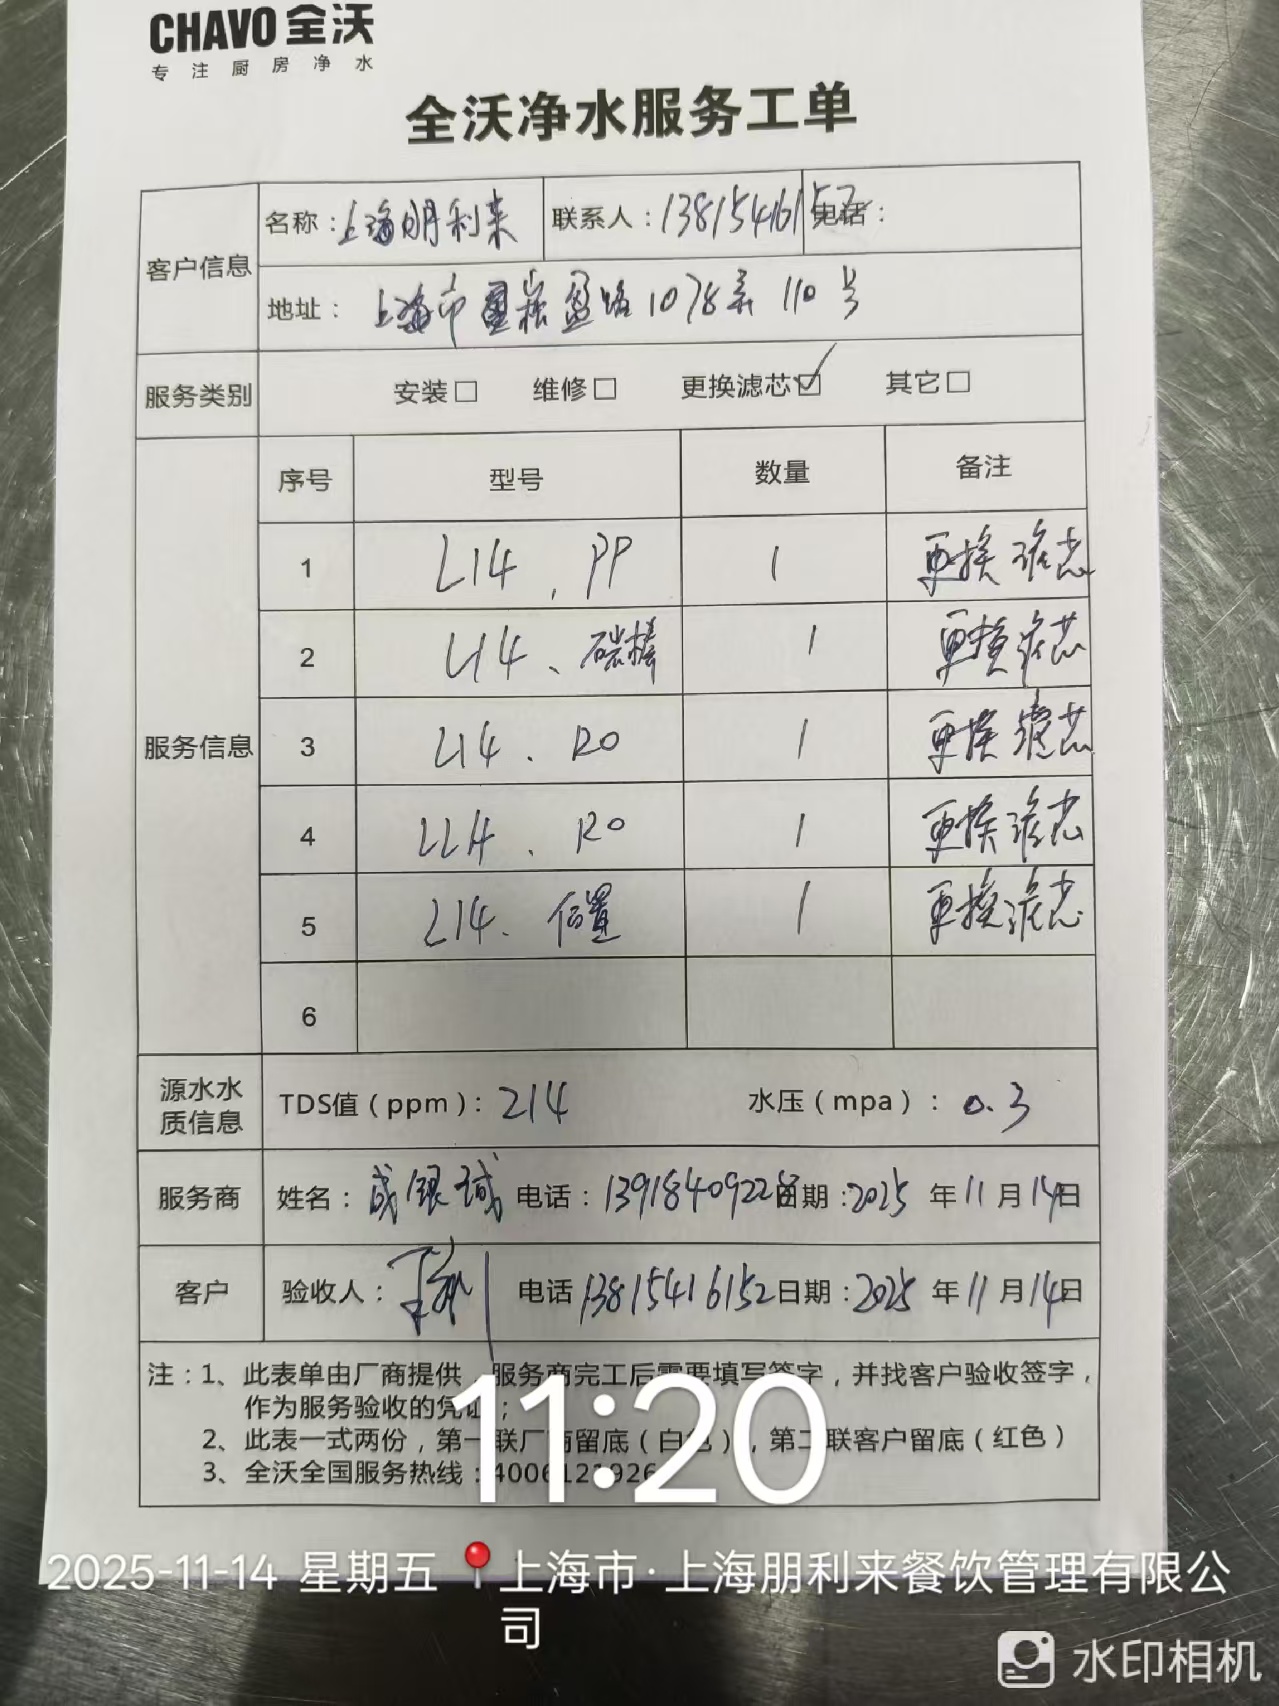 CHAVO 全沃
专注厨房净水
全沃净水服务工单
客户信息
名称：上海朋利来 联系人：13815416152 电话：
地址：上海市崧盈路1078弄110号
服务类别 安装□ 维修□ 更换滤芯☑ 其它□
服务信息
序号 型号 数量 备注
1 L14、PP 1 更换滤芯
2 L14、碳棒 1 更换滤芯
3 L14、RO 1 更换滤芯
4 L14、RO 1 更换滤芯
5 L14、后置 1 更换滤芯
6
源水水质信息 TDS值（ppm）：214 水压（mpa）：0.3
服务商 姓名：银 电话：13918409228 日期：2025年11月14日
客户 验收人： 电话 13815416152 日期：2025年11月14日
注：1、此表单由厂商提供，服务商完工后需要填写签字，并找客户验收签字，
作为服务验收的凭证；
2、此表一式两份，第一联厂商留底（白色），第二联客户留底（红色）
3、全沃全国服务热线：4006121926
11:20
2025-11-14 星期五 上海市·上海朋利来餐饮管理有限公
司
水印相机